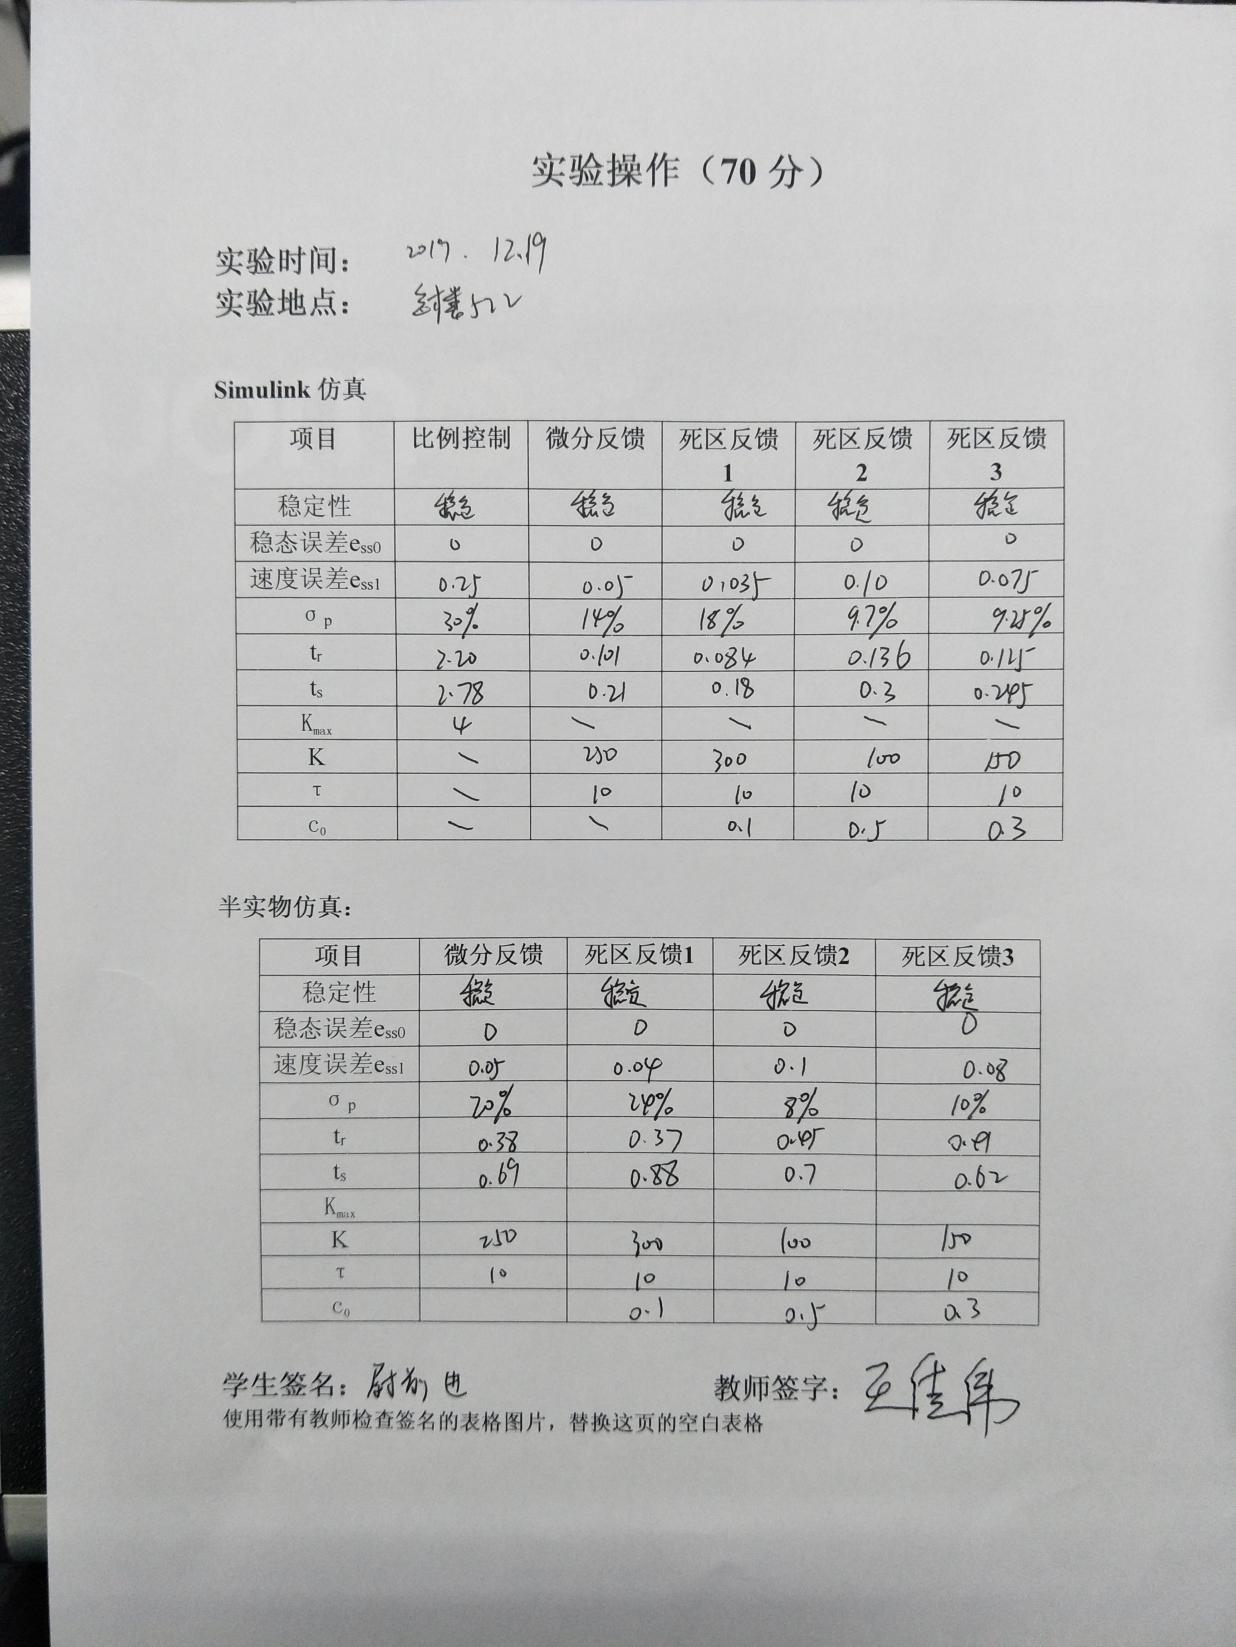 实验操作（70 分）
实验时间： 2017. 12.19
实验地点： 522
Simulink 仿真
项目 比例控制 微分反馈 死区反馈1 死区反馈2 死区反馈3
稳定性 稳定 稳定 稳定 稳定 稳定
稳态误差ess0 0 0 0 0 0
速度误差ess1 0.25 0.05 0.035 0.10 0.075
σp 30% 14% 18% 9.7% 9.25%
tr 2.20 0.101 0.084 0.136 0.125
ts 2.78 0.21 0.18 0.3 0.245
Kmax 4 \ \ \ \
K \ 250 300 100 150
τ \ 10 10 10 10
c0 \ \ 0.1 0.5 0.3
半实物仿真：
项目 微分反馈 死区反馈1 死区反馈2 死区反馈3
稳定性 稳定 稳定 稳定 稳定
稳态误差ess0 0 0 0 0
速度误差ess1 0.05 0.04 0.1 0.08
σp 20% 24% 8% 10%
tr 0.38 0.37 0.45 0.41
ts 0.69 0.88 0.7 0.62
Kmax
K 250 300 100 150
τ 10 10 10 10
c0 0.1 0.5 0.3
学生签名： 教师签字：王佳伟
使用带有教师检查签名的表格图片，替换这页的空白表格